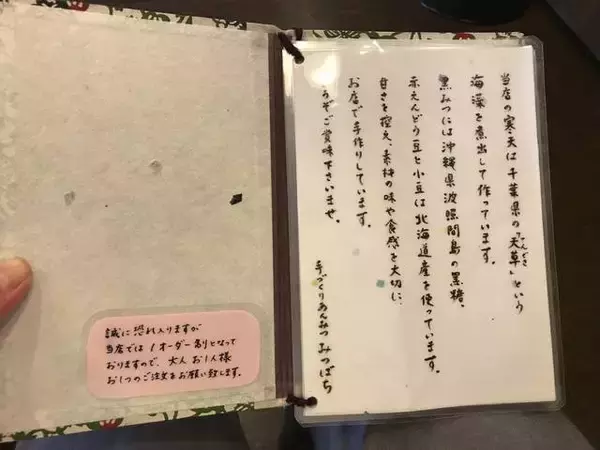 当店の寒天は千葉県の「天草」という
てんぐさ
海藻を煮出して作っています。
黒みつには沖縄県波照間島の黒糖、
赤えんどう豆と小豆は北海道産を使っています。
甘さを控え、素材の味や食感を大切に、
お店で手作りしています。
どうぞご賞味下さいませ。
手づくりあんみつ みつばち
誠に恐れ入りますが
当店では1オーダー制となって
おりますので、大人お1人様
お1つのご注文をお願い致します。